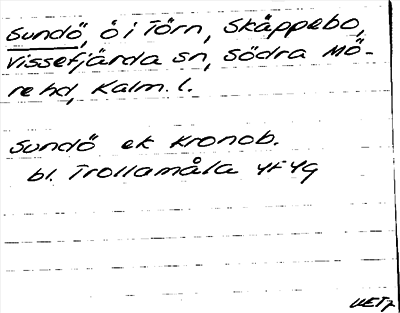 Sundö, ö i Törn, Skäppebo,
Vissefjärda sn, Södra Mö-
re hd, Kalm. l.
Sundö ek Kronob.
bl. Trollamåla 4F4g